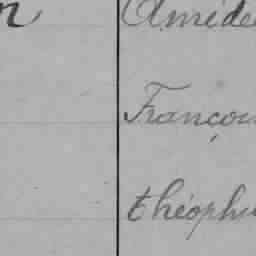 n
Amédé
Françoi
théophi